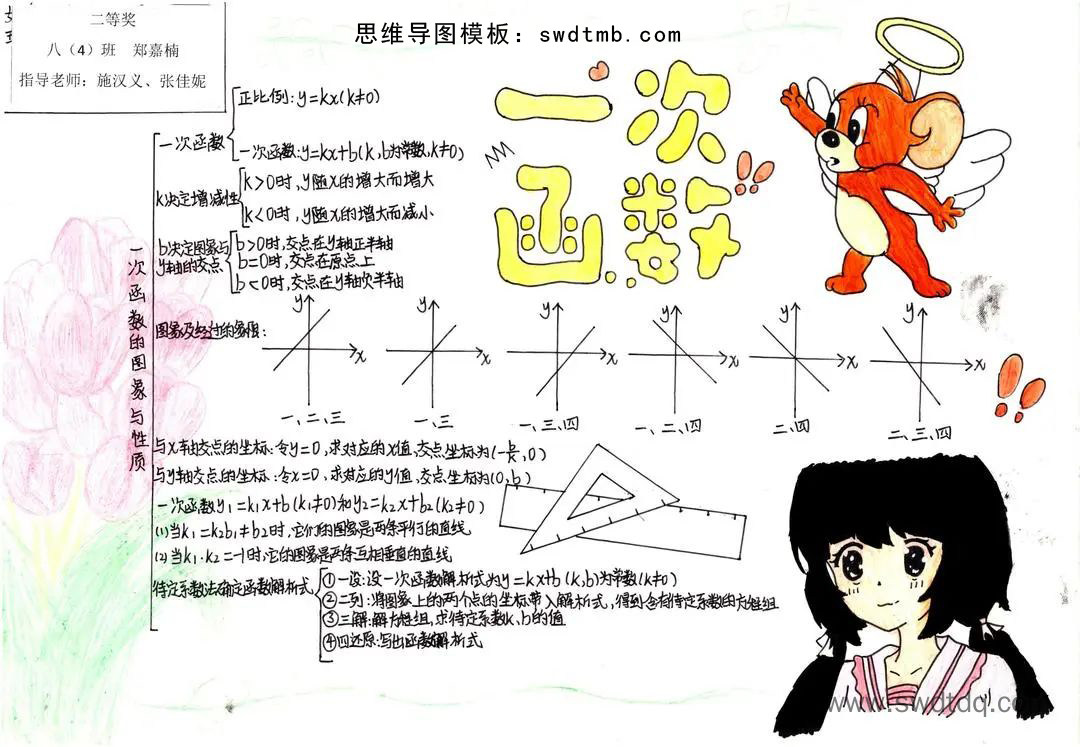 思维导图模板：swdtmb.com
二等奖
八（4）班 郑嘉楠
指导老师：施汉义、张佳妮
一次函数
一次函数的图象与性质
一次函数
正比例：y=kx(k≠0)
一次函数：y=kx+b(k,b为常数,k≠0)
k决定增减性
k>0时，y随x的增大而增大
k<0时，y随x的增大而减小
b决定图象与y轴的交点
b>0时，交点在y轴正半轴
b=0时，交点在原点上
b<0时，交点在y轴负半轴
图象及经过的象限：
y x y x y x y x y x y x
一、二、三 一、三 一、三、四 一、二、四 二、四 二、三、四
与x轴交点的坐标：令y=0，求对应的x值，交点坐标为(-b/k,0)
与y轴交点的坐标：令x=0，求对应的y值，交点坐标为(0,b)
一次函数y₁=k₁x+b(k₁≠0)和y₂=k₂x+b₂(k₂≠0)
(1)当k₁=k₂b₁≠b₂时，它们的图象是两条平行的直线
(2)当k₁·k₂=-1时，它的图象是两条互相垂直的直线
待定系数法确定函数解析式
①一设：设一次函数解析式为y=kx+b(k,b)为常数(k≠0)
②二列：将图象上的两个点的坐标带入解析式，得到含有待定系数的方程组
③三解：解方程组，求待定系数k、b的值
④四还原：写出函数解析式
www.swdtdq.com